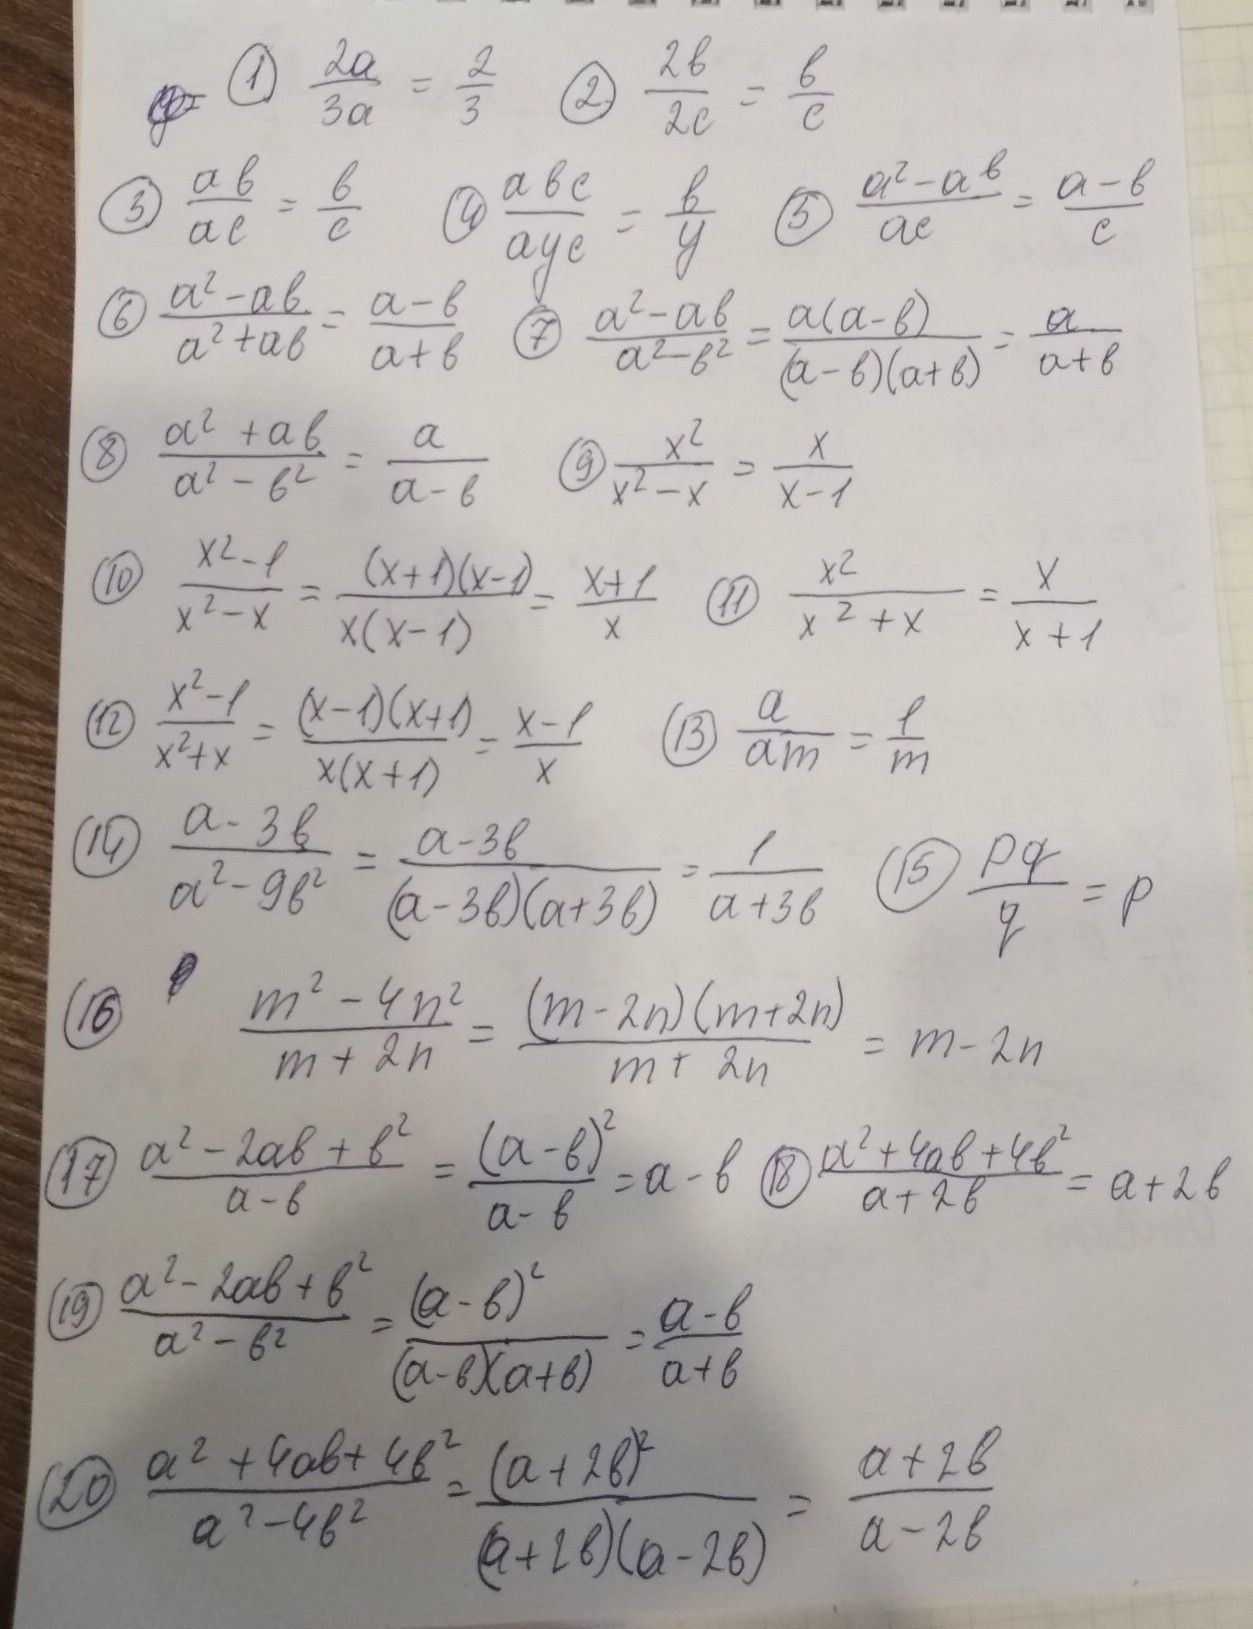 ① 2a/3a = 2/3 ② 2в/2c = в/c
③ aв/ac = в/c ④ aвc/ayc = в/y ⑤ (a²-aв)/ac = (a-в)/c
⑥ (a²-aв)/(a²+aв) = (a-в)/(a+в) ⑦ (a²-aв)/(a²-в²) = a(a-в)/((a-в)(a+в)) = a/(a+в)
⑧ (a²+aв)/(a²-в²) = a/(a-в) ⑨ x²/(x²-x) = x/(x-1)
⑩ (x²-1)/(x²-x) = (x+1)(x-1)/(x(x-1)) = (x+1)/x ⑪ x²/(x²+x) = x/(x+1)
⑫ (x²-1)/(x²+x) = (x-1)(x+1)/(x(x+1)) = (x-1)/x ⑬ a/am = 1/m
⑭ (a-3в)/(a²-9в²) = (a-3в)/((a-3в)(a+3в)) = 1/(a+3в) ⑮ pq/q = p
⑯ (m²-4n²)/(m+2n) = (m-2n)(m+2n)/(m+2n) = m-2n
⑰ (a²-2aв+в²)/(a-в) = (a-в)²/(a-в) = a-в ⑱ (a²+4aв+4в²)/(a+2в) = a+2в
⑲ (a²-2aв+в²)/(a²-в²) = (a-в)²/((a-в)(a+в)) = (a-в)/(a+в)
⑳ (a²+4aв+4в²)/(a²-4в²) = (a+2в)²/((a+2в)(a-2в)) = (a+2в)/(a-2в)